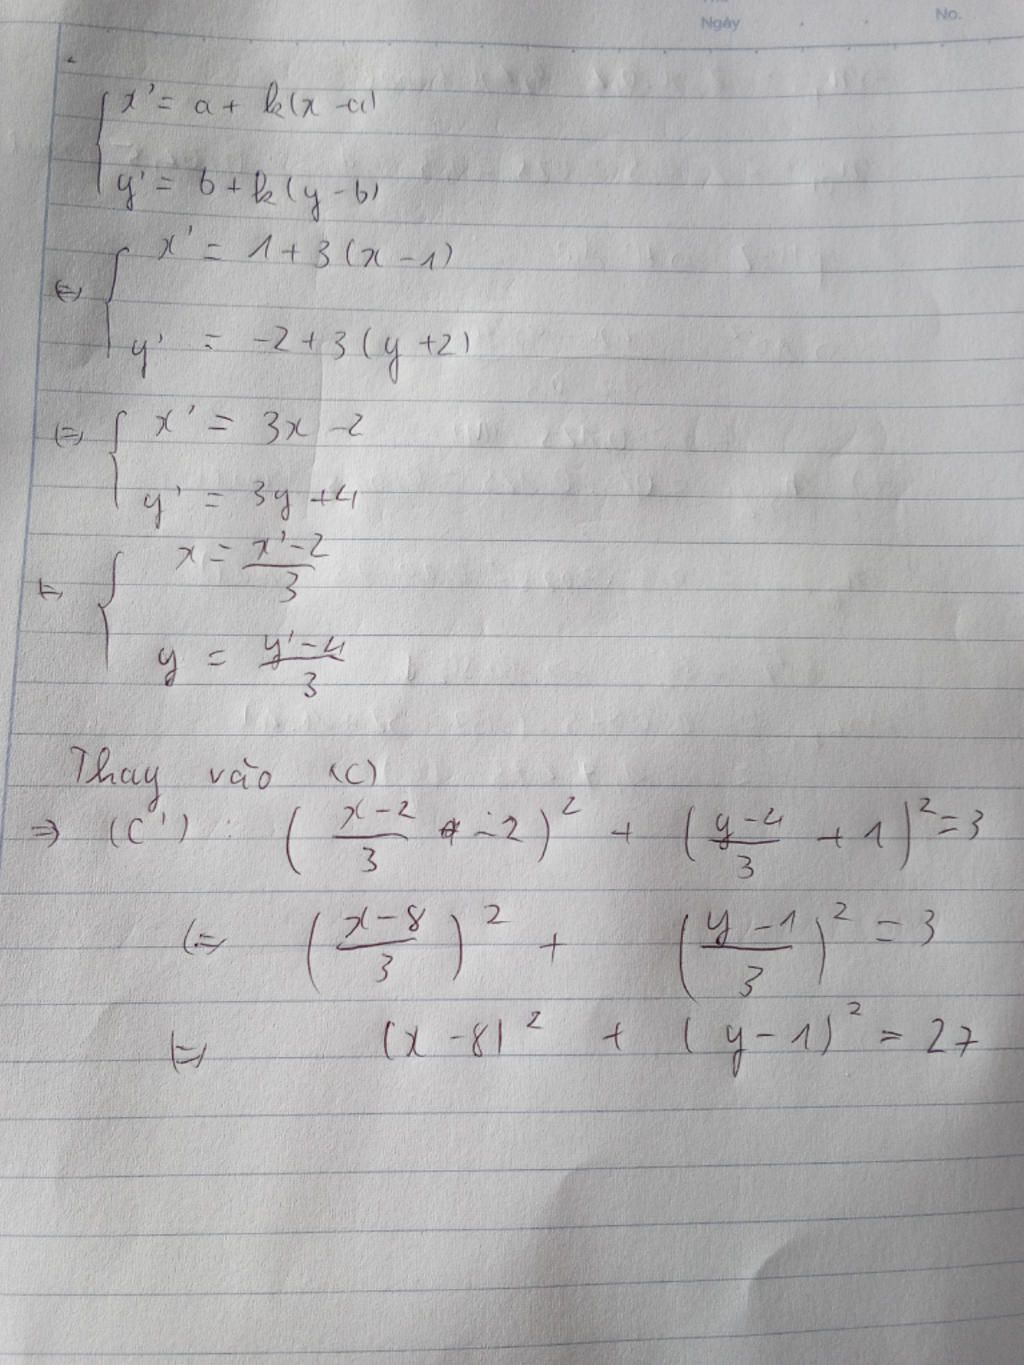 Ngày No.
{ x' = a + k(x - a)
y' = b + k(y - b)
⇔ { x' = 1 + 3(x - 1)
y' = -2 + 3(y + 2)
⇔ { x' = 3x - 2
y' = 3y + 4
⇔ { x = \frac{x' - 2}{3}
y = \frac{y' - 4}{3}
Thay vào (C)
⇒ (C') : (\frac{x - 2}{3} - 2)^2 + (\frac{y - 4}{3} + 1)^2 = 3
⇔ (\frac{x - 8}{3})^2 + (\frac{y - 1}{3})^2 = 3
⇔ (x - 8)^2 + (y - 1)^2 = 27